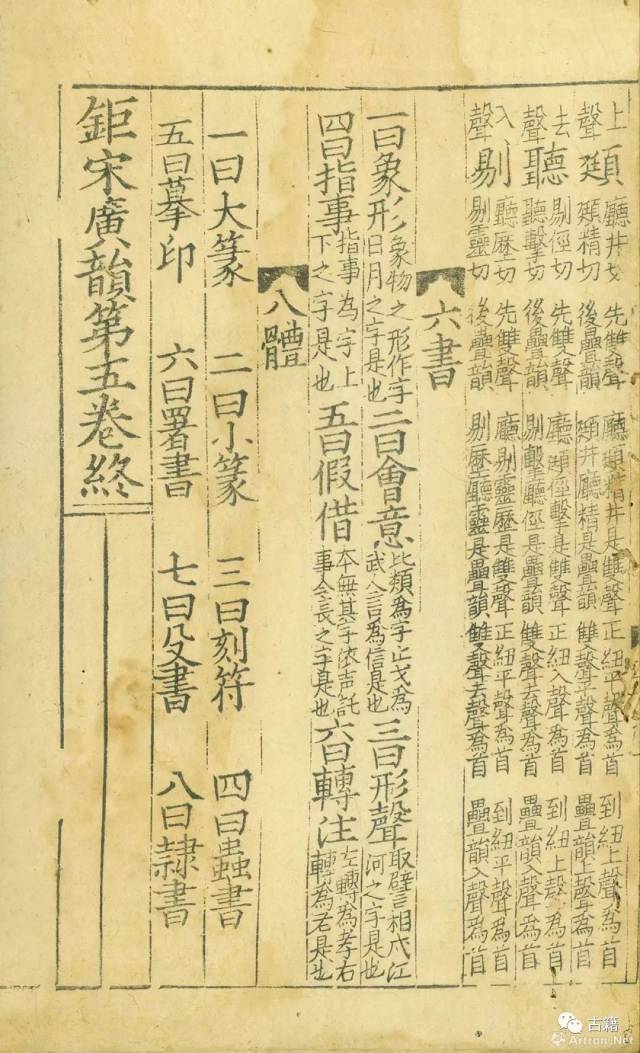 上聲頲廳井切先雙聲廳頲精井是雙聲正紐平聲為首到紐上聲為首
頲精切後疊韻頲井廳精是疊韻雙聲平聲為首疊韻上聲為首
去聲聽剔徑切先雙聲廳頲徑擊是雙聲正紐入聲為首到紐上聲為首
聽擊切後疊韻剔擊聽徑是疊韻雙聲去聲為首疊韻入聲為首
入聲剔廳歷切先雙聲廳剔靈歷是雙聲正紐平聲為首到紐平聲為首
剔靈切後疊韻剔歷廳靈是疊韻雙聲去聲為首疊韻入聲為首
六書
一曰象形象物之形作字日月之字是也二曰會意比類為字止戈為武人言為信是也三曰形聲取譬相成江河之字是也
四曰指事指事為字上下之字是也五曰假借本無其字依声託事令長之字是也六曰轉注左轉為孝右轉為老是也
八體
一曰大篆 二曰小篆 三曰刻符 四曰蟲書
五曰摹印 六曰署書 七曰殳書 八曰隷書
鉅宋廣韻第五卷終
古籍
Artron.Net